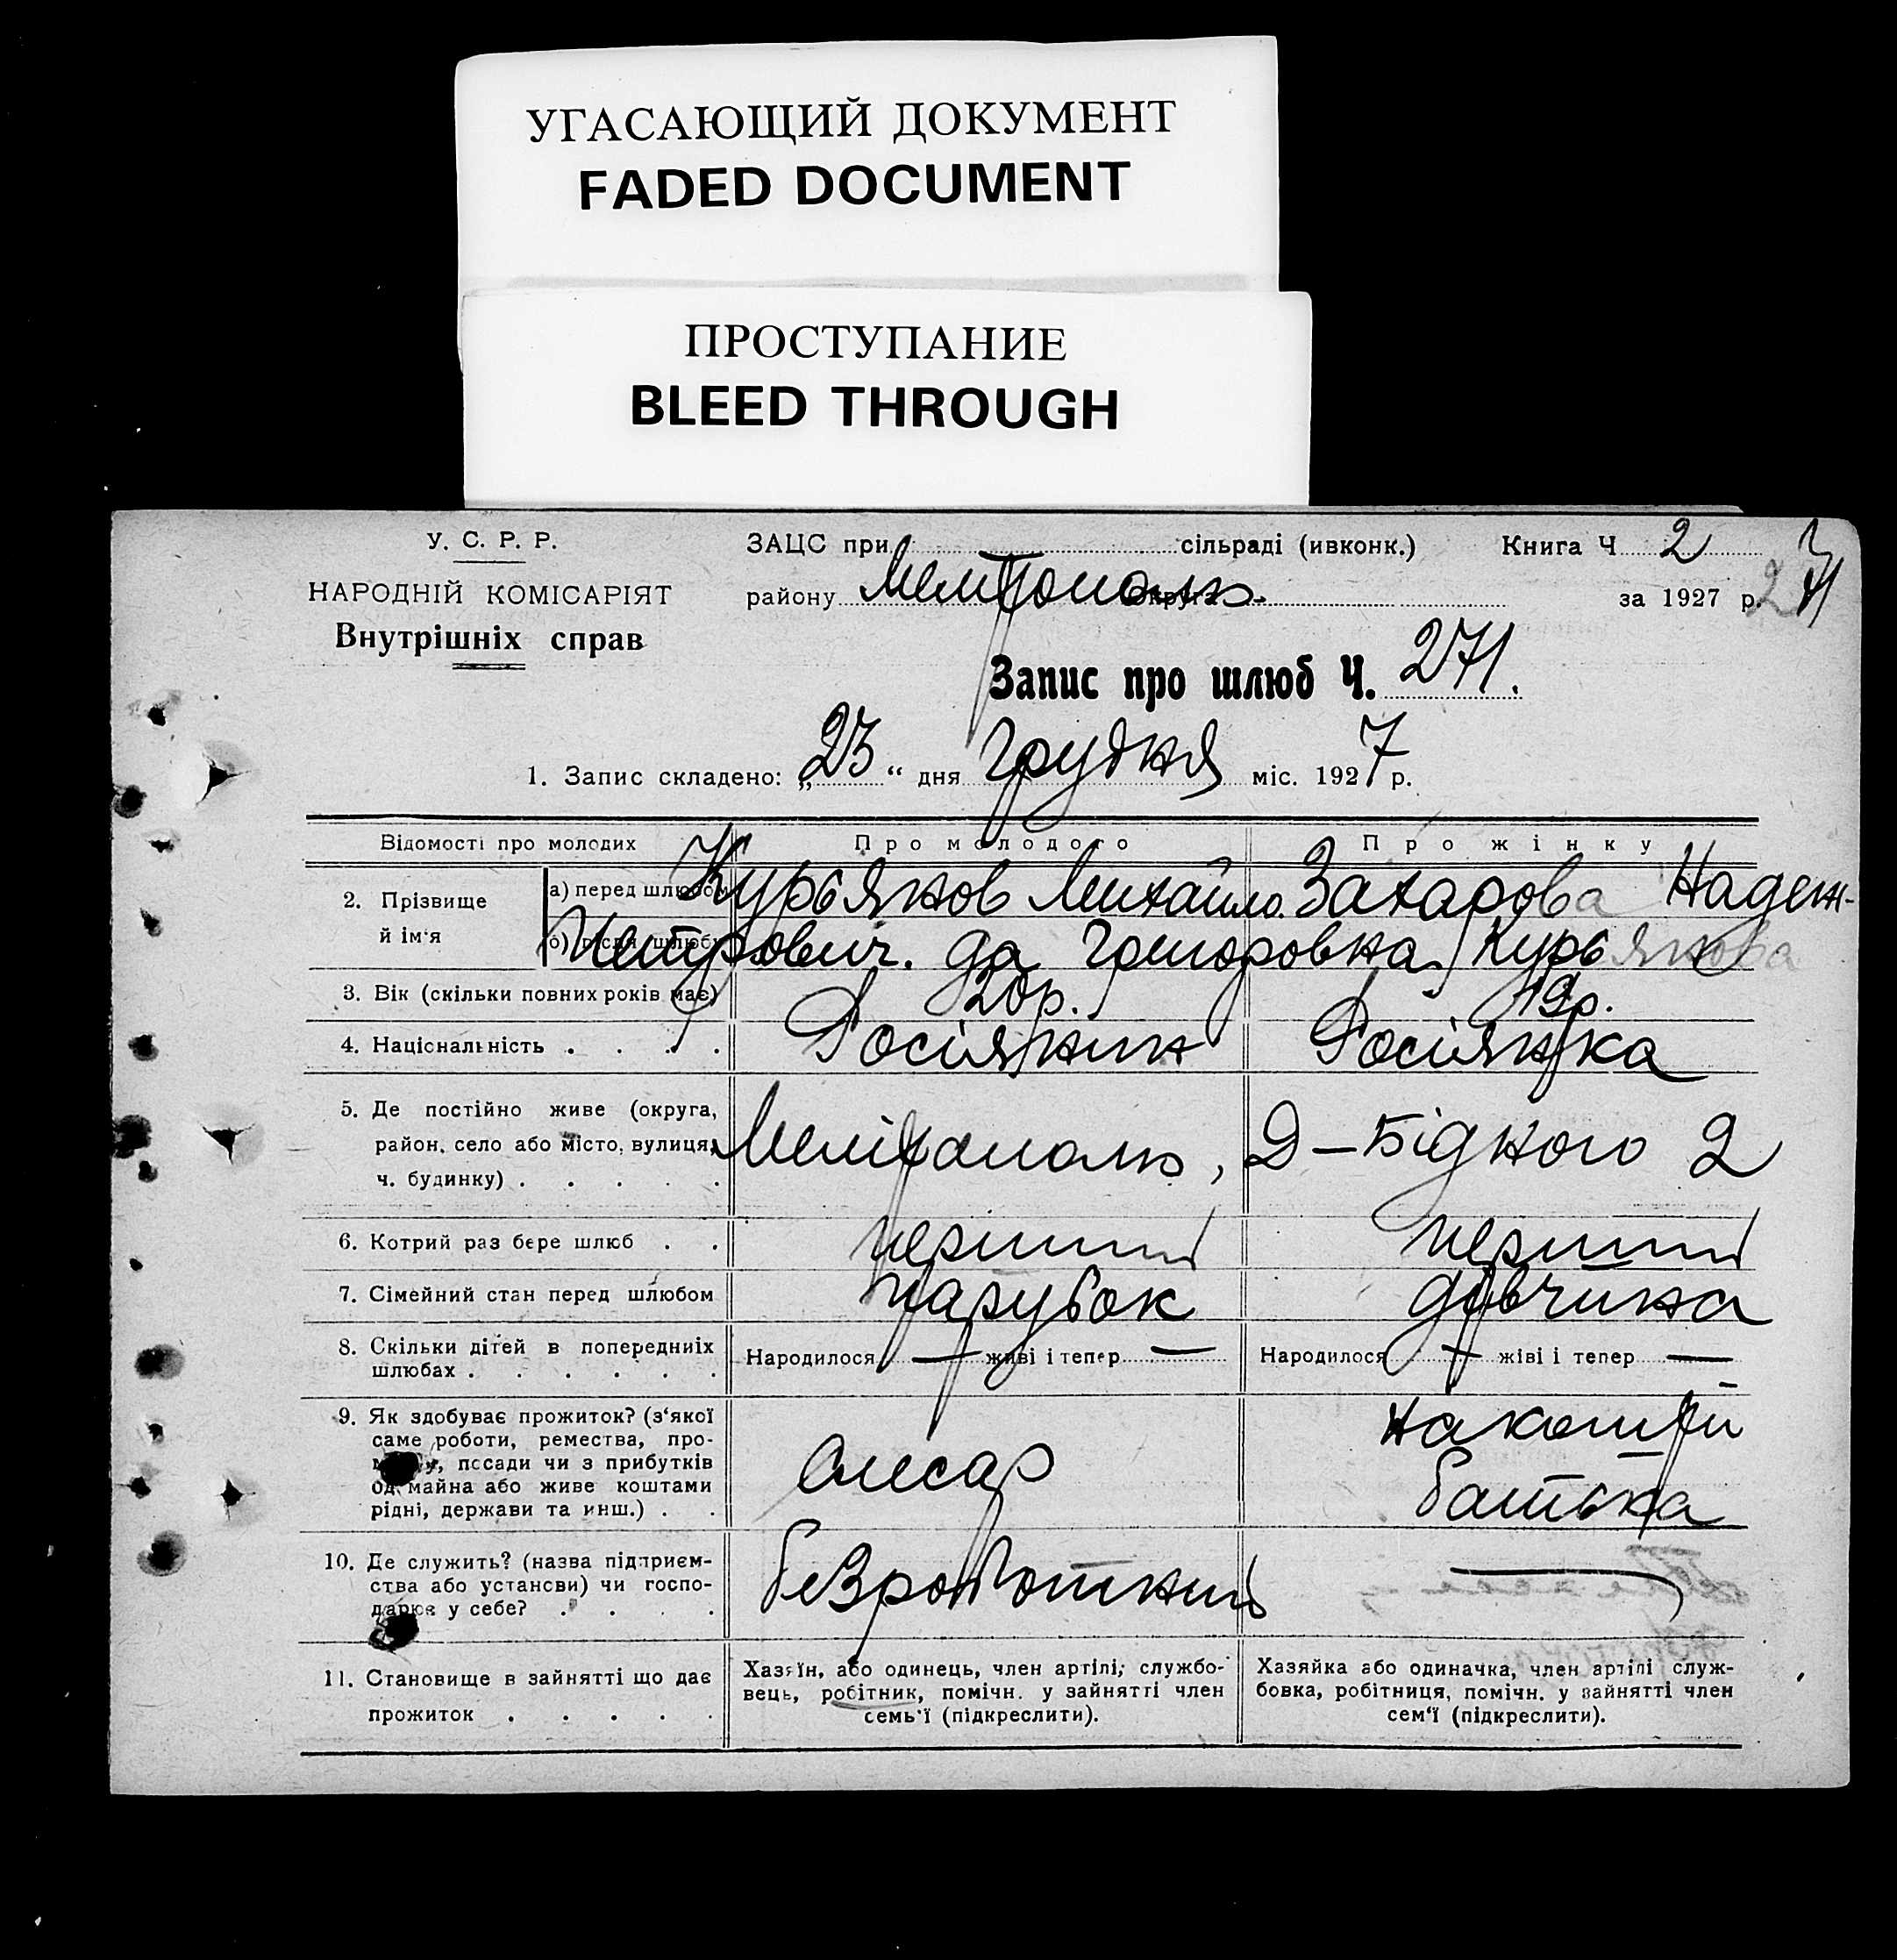 УГАСАЮЩИЙ ДОКУМЕНТ
FADED DOCUMENT
ПРОСТУПАНИЕ
BLEED THROUGH
У. С. Р. Р.
НАРОДНІЙ КОМІСАРІЯТ
Внутрішніх справ
ЗАЦС при сільраді (ивконк.) Книга Ч 2
району округи за 1927 р.
Запис про шлюб Ч. 271.
1. Запис складено: „23“ дня Грудня міс. 1927 р.
Відомості про молодих Про молодого Про жінку
2. Прізвище й ім'я
а) перед шлюбом Курьянов Михайло Захарова Надеж-
б) після шлюбу Петрович. да Григоровна Курьянова
3. Вік (скільки повних років має) 20р. 19р.
4. Національність . . . . Росіянин Росіянка
5. Де постійно живе (округа,
район, село або місто, вулиця, Мелітополь, Д-Бідного 2
ч. будинку) . . . . .
6. Котрий раз бере шлюб . . перший перший
7. Сімейний стан перед шлюбом парубок дівчина
8. Скільки дітей в попередниіх
шлюбах . . . . . . Народилося — живі і тепер — Народилося — жіві і тепер —
9. Як здобуває прожиток? (з'якої
саме роботи, ремества, про-
мислу, посади чи з прибутків
од майна або живе коштами
рідні, держави та инш.) . .
Слесар
на кошті
батька
10. Де служить? (назва підприєм-
ства або установи) чи госпо-
дарює у себе? . . . .
безработний —
11. Становище в зайнятті що дає
прожиток . . . . .
Хазяїн, або одинець, член артілі, службо-
вець, робітник, помічн. у зайнятті член
семь'ї (підкреслити).
Хазяйка або одиначка, член артілі служ-
бовка, робітниця, помічн. у зайнятті член
сем'ї (підкреслити).